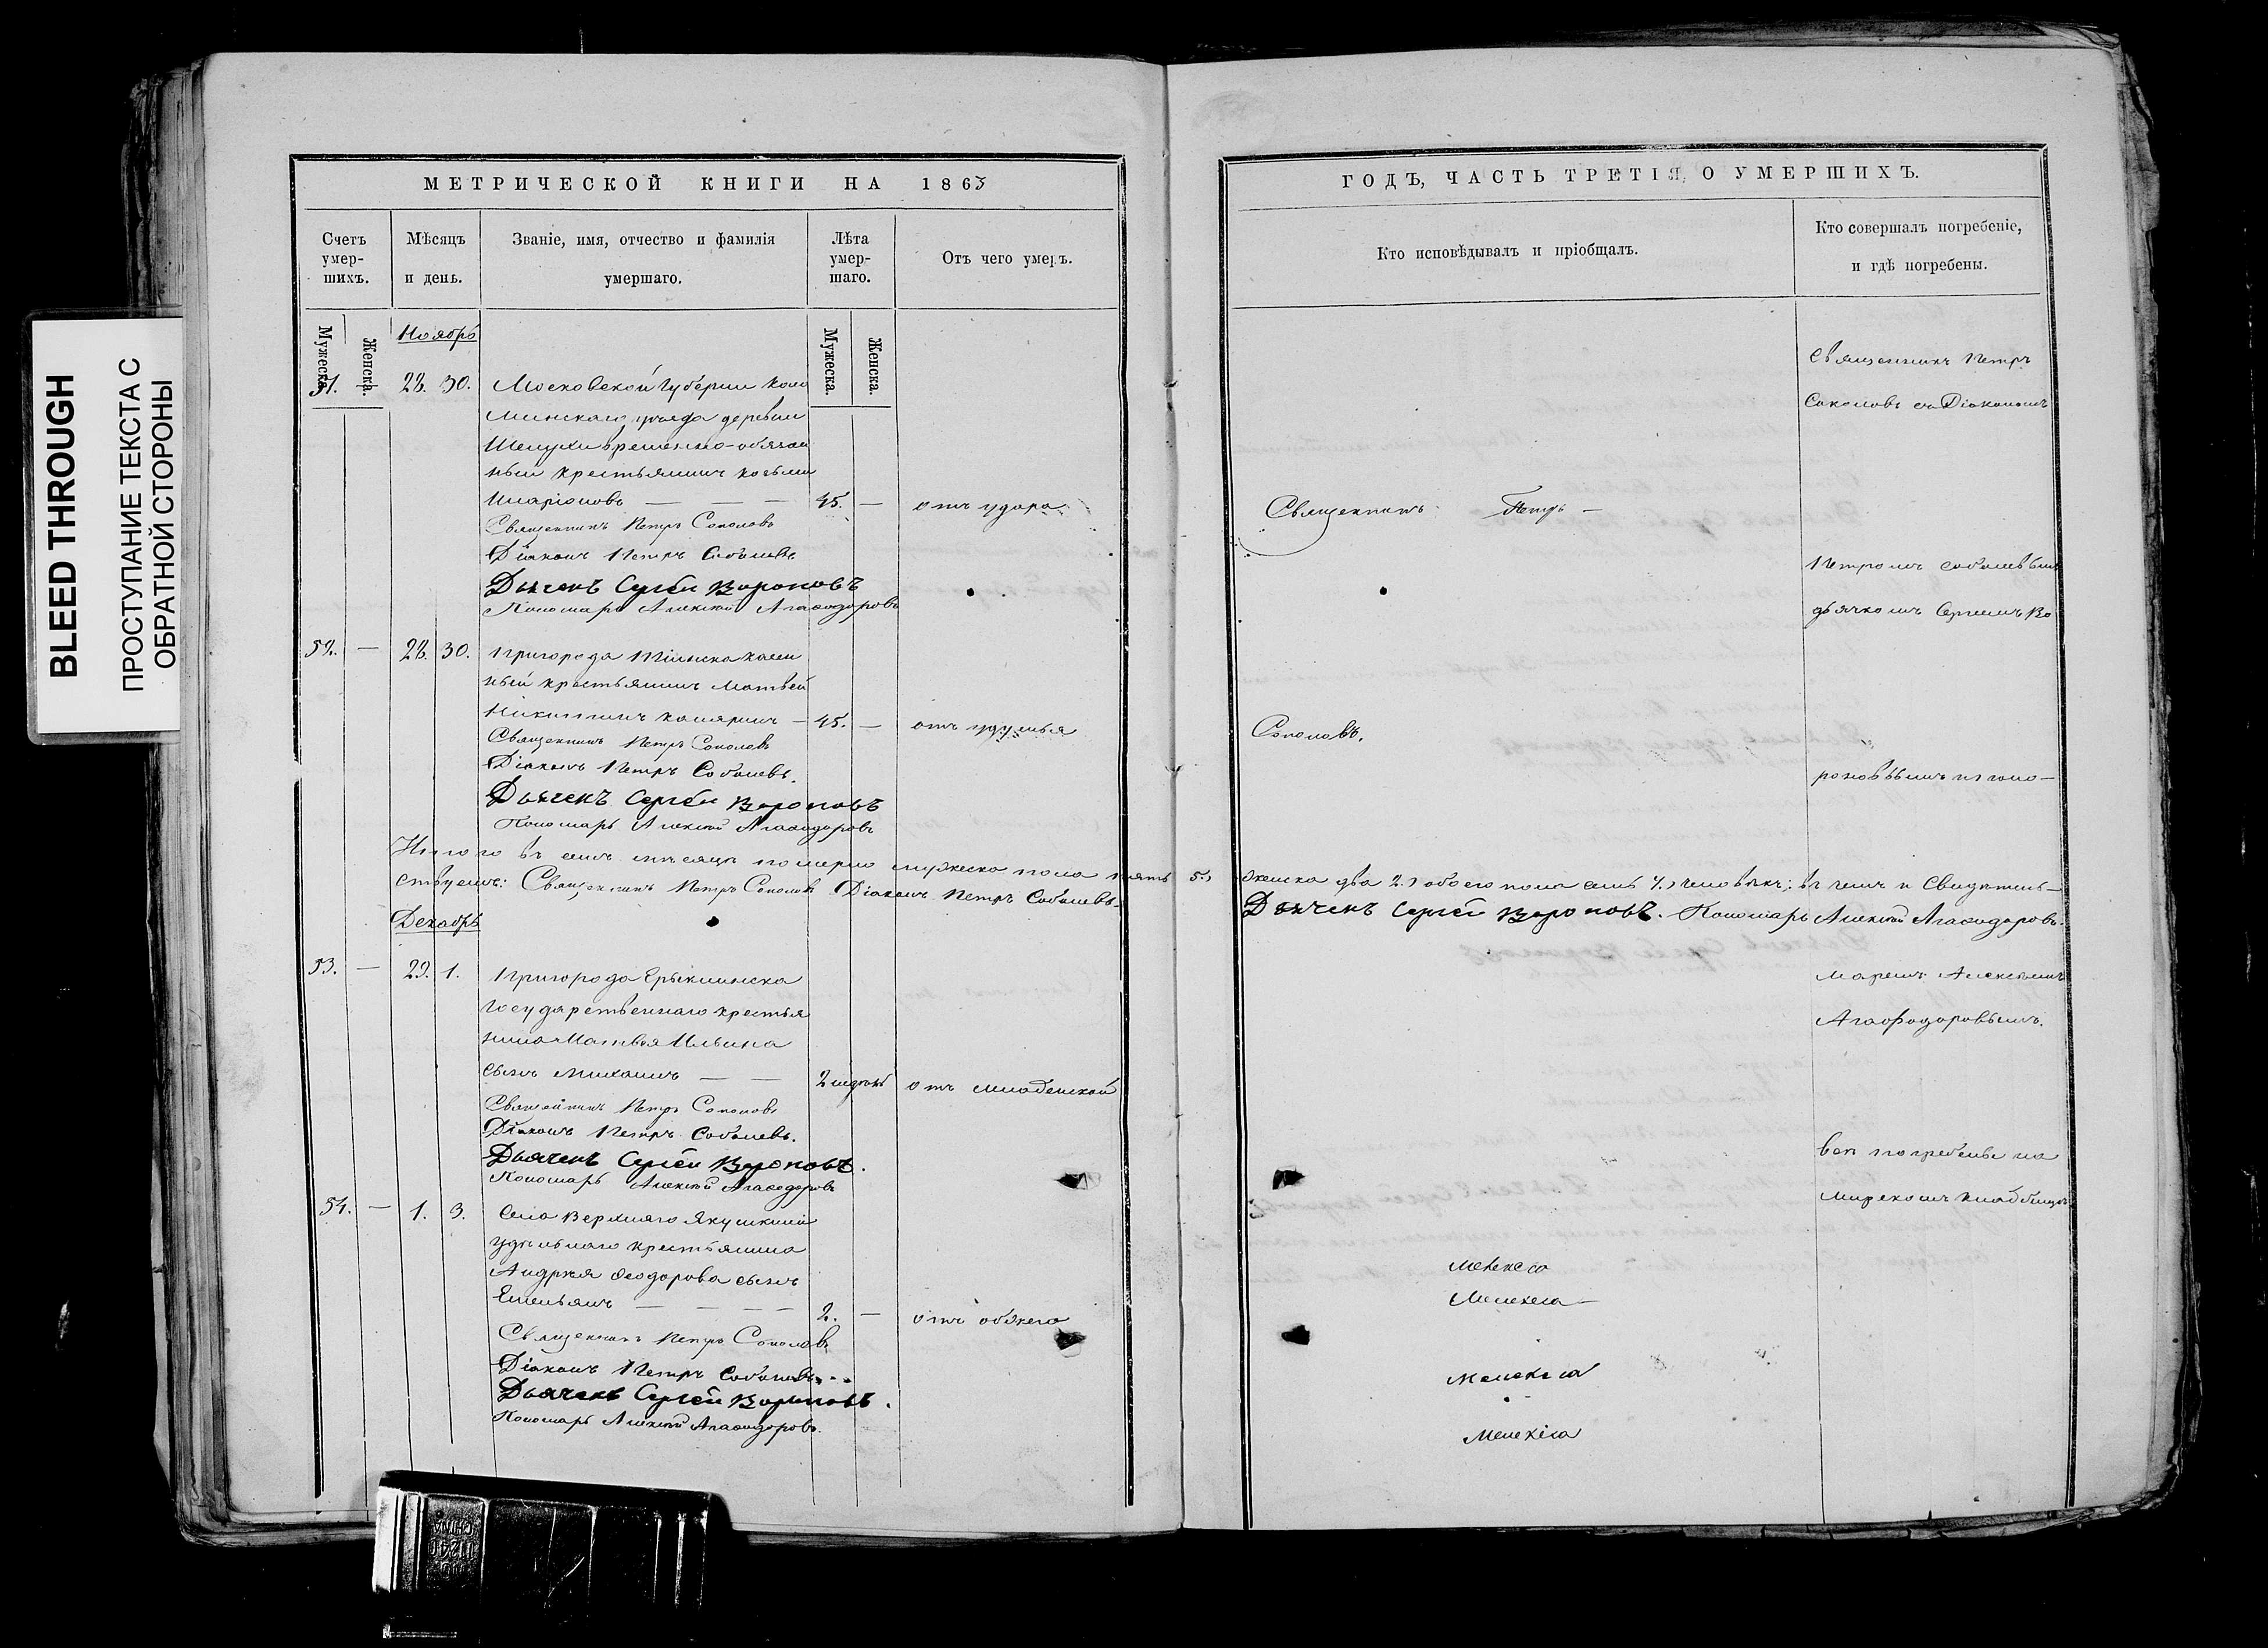 BLEED THROUGH
ПРОСТУПАНИЕ ТЕКСТА С
ОБРАТНОЙ СТОРОНЫ
МЕТРИЧЕСКОЙ КНИГИ НА 1863
Счетъ умер-шихъ.
Мѣсяцъ и день.
Званіе, имя, отчество и фамилія умершаго.
Лѣта умер-шаго.
Отъ чего умеръ.
Мужеска.
Женска.
Мужеска.
Женска.
Ноябрь
51. 28. 30. Московской губерніи Коло
минскаго уѣзда деревни
временно-обязан
ный крестьянинъ Козьма
Иларіоновъ — — — 45. — отъ удара
Священникъ Петръ Соколовъ
Діаконъ Петръ Соболевъ
Дьячекъ Сергѣй Вороновъ
Пономарь Алексѣй Агаѳодоровъ
52. — 28. 30. Пригорода Тіинска казен
ный крестьянинъ Матвей
Никитинъ — 45. — отъ удушья
Священникъ Петръ Соколовъ
Діаконъ Петръ Соболевъ.
Дьячекъ Сергѣй Вороновъ
Пономарь Алексѣй Агаѳодоровъ
Итого въ семъ мѣсяцѣ померло мужеска пола пять
ствуемъ: Священникъ Петръ Соколовъ Діаконъ Петръ Соболевъ.
Декабрь
53. — 29. 1. Пригорода Ерыклинска
государственнаго крестья
нина Матвѣя Ильина
сынъ Михаилъ — — 2 недѣль отъ младенской
Священникъ Петръ Соколовъ
Діаконъ Петръ Соболевъ.
Дьячекъ Сергѣй Вороновъ.
Пономарь Алексѣй Агаѳодоровъ
54. — 1. 3. Села Верхняго Якушкина
удѣльнаго крестьянина
Андрея Ѳеодорова сынъ
Емельянъ — — — — 2. — отъ обжега
Священникъ Петръ Соколовъ
Діаконъ Петръ Соболевъ
Дьячекъ Сергѣй Вороновъ.
Пономарь Алексѣй Агаѳодоровъ.
ГОДЪ, ЧАСТЬ ТРЕТІЯ, О УМЕРШИХЪ.
Кто исповѣдывалъ и пріобщалъ.
Кто совершалъ погребеніе, и гдѣ погребены.
Священникъ Петръ
Соколовъ съ Діакономъ
Священникъ Петръ —
Петромъ Соболевымъ
дьячкомъ Сергеемъ Во
Соколовъ.
роновымъ и поно—
5.) женска два 2.) обоего пола семь 7.) человѣкъ; въ чемъ и Свидѣтель—
Дьячекъ Сергѣй Вороновъ. Пономарь Алексѣй Агаѳодоровъ.
маремъ Алексѣемъ
Агаѳодоровымъ.
вси погребены на
мирскомъ кладбищѣ
Мелекеса
Мелекеса —
Мелекеса
Мелекеса